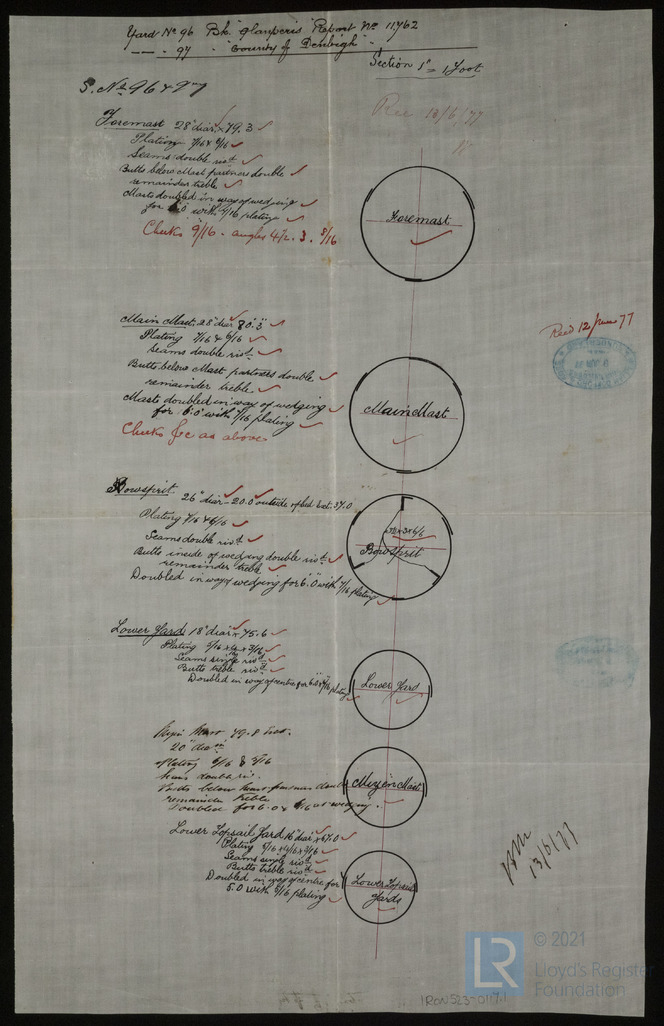 Yard No 96 Bk. "Glanperis" Report No 11762
—— " 97 " "County of Denbigh" "
Section 1" = 1 Foot
S. Nos 96 & 97
Rec 13/6/77
Foremast 28" diar. x 79.3
Plating 7/16 & 6/16
Seams double rivt.
Butts below Mast partners double
remainder treble
Masts doubled in way of wedging
for 6.0 with 7/16 plating
Cheeks 9/16 - angles 4½. 3. 8/16
Foremast
Main Mast. 28" diar 80'.3"
Plating 7/16 & 6/16
Seams double rivt.
Butts below Mast partners double
remainder treble
Masts doubled in way of wedging
for 6'.0" with 7/16 plating
Cheeks &c as above
Main Mast
Recd 12 June 77
Bowsprit 26" diar - 20.0 outside
Plating 7/16 & 6/16
Seams double rivt.
Butts inside of wedging double rivt.
remainder treble
Doubled in way of wedging for 6'.0" with 7/16 plating
Bowsprit
Lower Yards 18" diar x 75.6
Plating 5/16
Seams single rivt.
Butts treble rivt.
Doubled in way of centre for plating
Lower Yard
Mizen Mast 79.8
20" diar
Plating 6/16 & 5/16
Seams double riv.
Butts below
remainder treble
Doubled for 6.0 wedging.
Mizen Mast
Lower Topsail Yard 16" diar x 67.0
Plating 5/16 x 4/16 x 3/16
Seams single rivt.
Butts treble rivt.
Doubled in way of centre for
5.0 with 5/16 plating
Lower Topsail
Yards
13/6/77
LR
© 2021
Lloyd's Register
Foundation
IRON523-0117-1